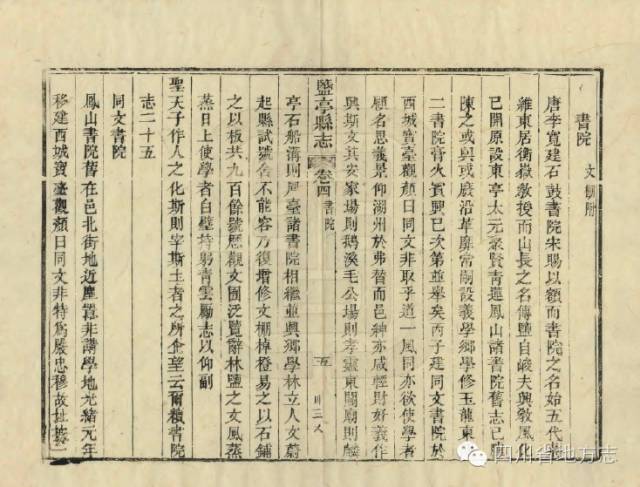 書院 文棚附
唐李寬建石鼓書院宋賜以額而書院之名始五代
維東居衡嶽敎授而山長之名傳鹽自峻夫興敎風化
已開原設東亭太元聚賢靑蓮鳳山諸書院舊志已
陳之或與或廢沿革靡常嗣設義學鄉學修玉龍東
二書院膏火賓興已次第並舉矣丙子建同文書院於
酉城寶臺觀顏曰同文非取乎道一風同亦欲使學者
顧名思義景仰湖州於弗替而邑紳亦咸輕財好義作
興斯文其安家場則鵝溪毛公場則孝靈東關廟則麟
鹽亭縣志 卷四 書院 五
亭石船溝則鳳臺諸書院相繼並興鄉學林立人文蔚
起縣試號舍不能容乃復增修文棚棹櫈易之以石鋪
之以板共九百餘號歷觀文囿泛覽辭林鹽之文風蒸
蒸日上使學者白璧持躬靑雲勵志以仰副
聖天子作人之化斯則宰斯土者之所企望云爾續書院
志二十五
同文書院
鳳山書院舊在邑北街地近塵囂非講學地光緒元年
移建酉城寶臺觀顏曰同文非特爲嚴忠穆故址
四川省地方志